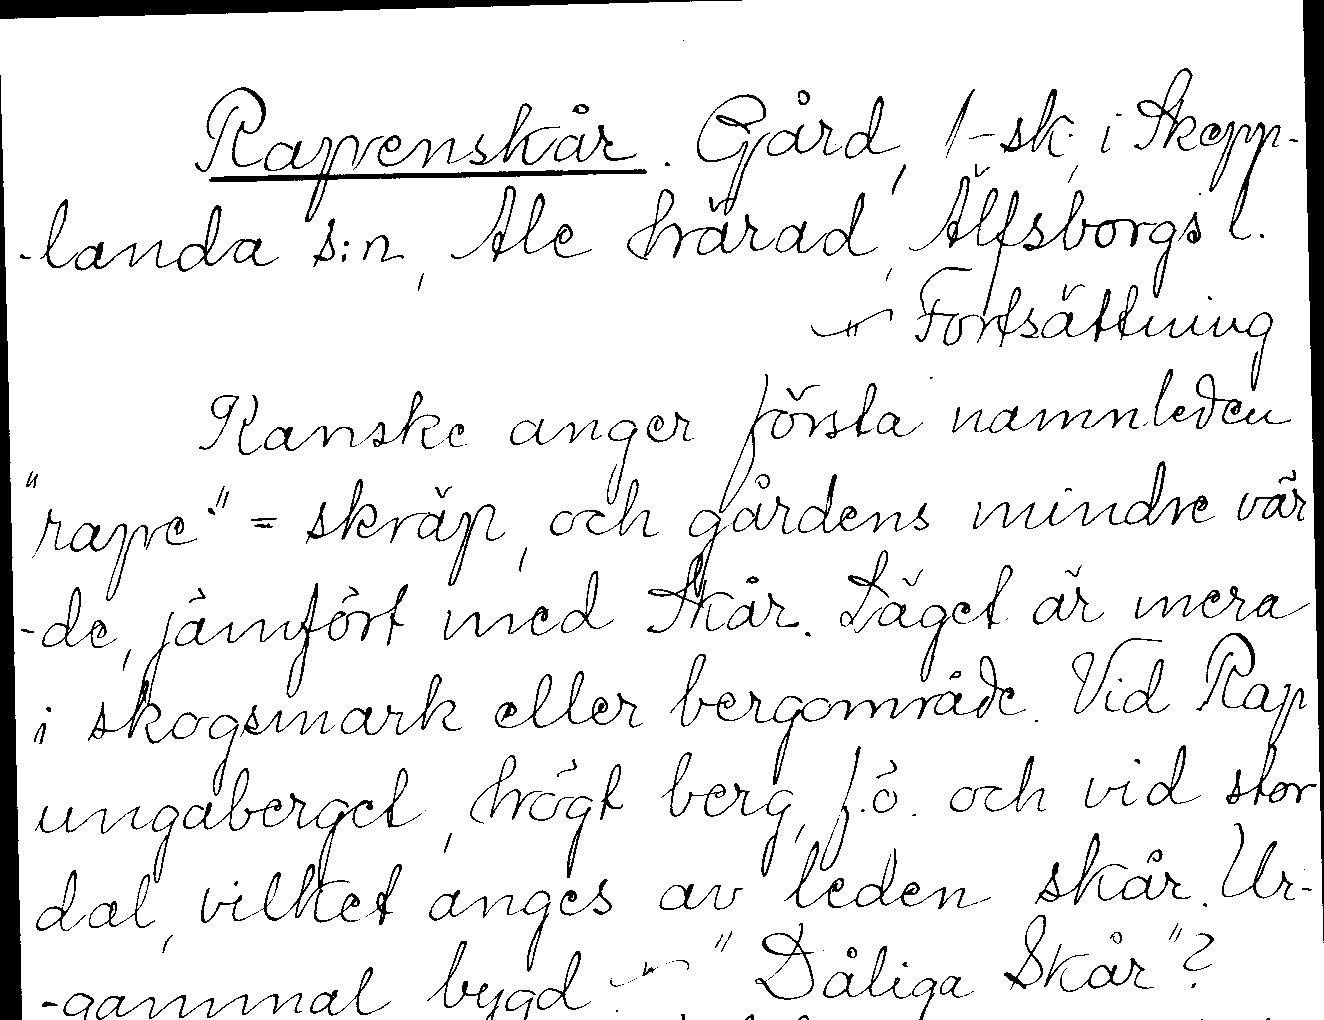 Rapenskår. Gård, 1-sk, i Skepp-
-landa s:n, Ale härad, Älfsborgs l.
-"- Fortsättning
Kanske anger första namnleden
"rape" = skräp, och gårdens mindre vär
-de, jämfört med Skår. Läget är mera
i skogsmark eller bergområde. Vid Rap
ungaberget, högt berg, f.ö. och vid stor
dal, vilket anges av leden skår. Ur-
-gammal bygd -"- "Dåliga Skår"?